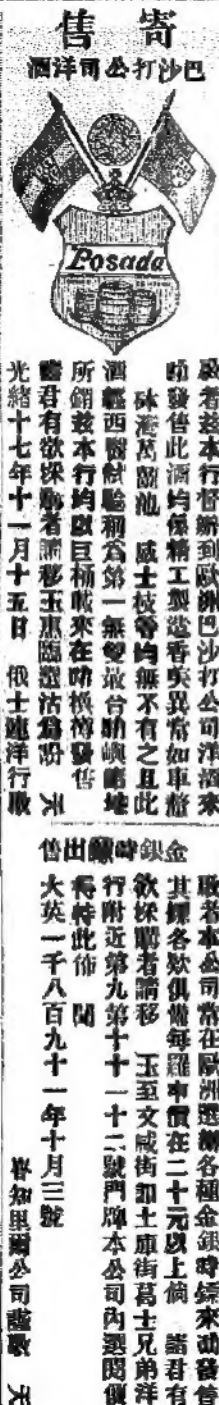 寄售
巴沙打公司洋酒
Posada
啟者茲本行督辦到歐洲巴沙打公司洋酒來
叻發售此酒均係精工製造香美異常如車厘
砵海萬 池 威士枝等均無不有之且此
酒經西醫試驗稱為第一無雙最合叻嶼 埠
所銷茲本行均以巨桶載來在叻換樽發售
諸君有欲採購者請移玉惠臨選沽為盼 天
光緒十七年十一月十五日 俄士連洋行啟
金銀時鏢出售
啟者本公司常在歐洲選辦各種金銀時鏢來叻發售
其鏢各欵俱備每羅車價在二十元以上倘 諸君有
欲採購者請移 玉至文咸街卽土庫街葛士兄弟洋
行附近第九第十十一十二號門牌本公司內選閱價
特此佈 聞
大英一千八百九十一年十月三號
知里爾公司謹啟 天